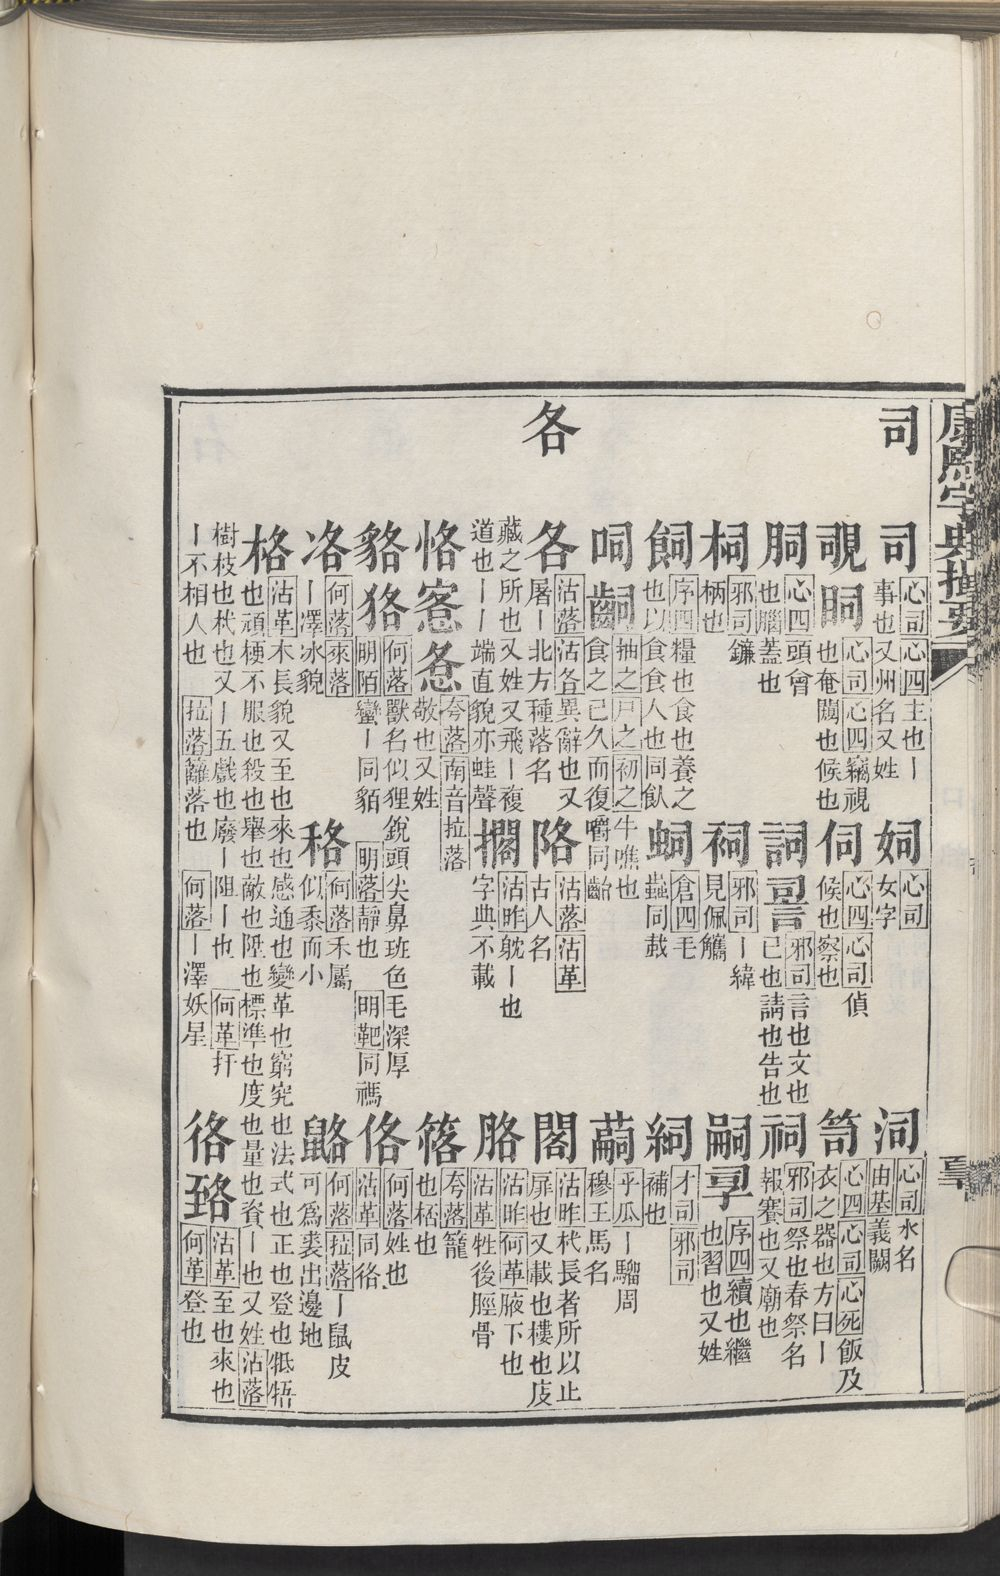 康熙字典撮要
司
司 心司心四主也丨事也又州名又姓
姁 心司女字
泀 心司水名由基義闕
覗眮 心司心四竊視也奄閹也候也
伺 心四心司偵候也察也
笥 心四心司心死飯及衣之器也方曰丨
胴 心四頭會也腦蓋也
詞䛐 邪司言也文也已也請也告也
祠 邪司祭也春祭名報賽也又廟也
柌 邪司鐮柄也
祠 邪司丨緯見佩觿
嗣孠 序四續也繼也習也又姓
飼 序四糧也食也養之也以食食人也同飤
蚼 倉四毛蟲同蛓
絧 才司邪司補也
呞齝 抽之尸之初之牛噍也食之已久而復嚼同齝
䔮 乎瓜丨騮周穆王馬名
各
各 沽落沽各異辭也又屠丨北方種落名
詻 沽落沽革古人名
閣 沽昨杙長者所以止扉也又載也樓也庋藏之所也又姓又飛丨複道也丨丨端直貌亦蛙聲
擱 沽昨躭丨也字典不載
胳 沽昨何革腋下也沽革牲後脛骨
恪愙㤩 夸落南音拉落敬也又姓
䈷 夸落籠也栝也
貉狢 何落獸名似狸銳頭尖鼻班色毛深厚明陌蠻丨同貊明落靜也明靶同禡
佫 何落姓也沽革同佫
洛 何落來落丨凙冰貌
秴 何落禾屬似黍而小
鼯 何落拉落丨鼠皮可爲裘出邊地
格 沽革木長貌又至也來也感通也變革也窮究也法式也正也登也牴牾也頑梗不服也殺也舉也敵也陞也標準也度也量也資丨也又姓沽落樹枝也杙也又丨五戲也廢丨阻丨也何革扞丨不相人也拉落籬落也何落丨澤妖星
佫 臵 沽革至也來也何革登也